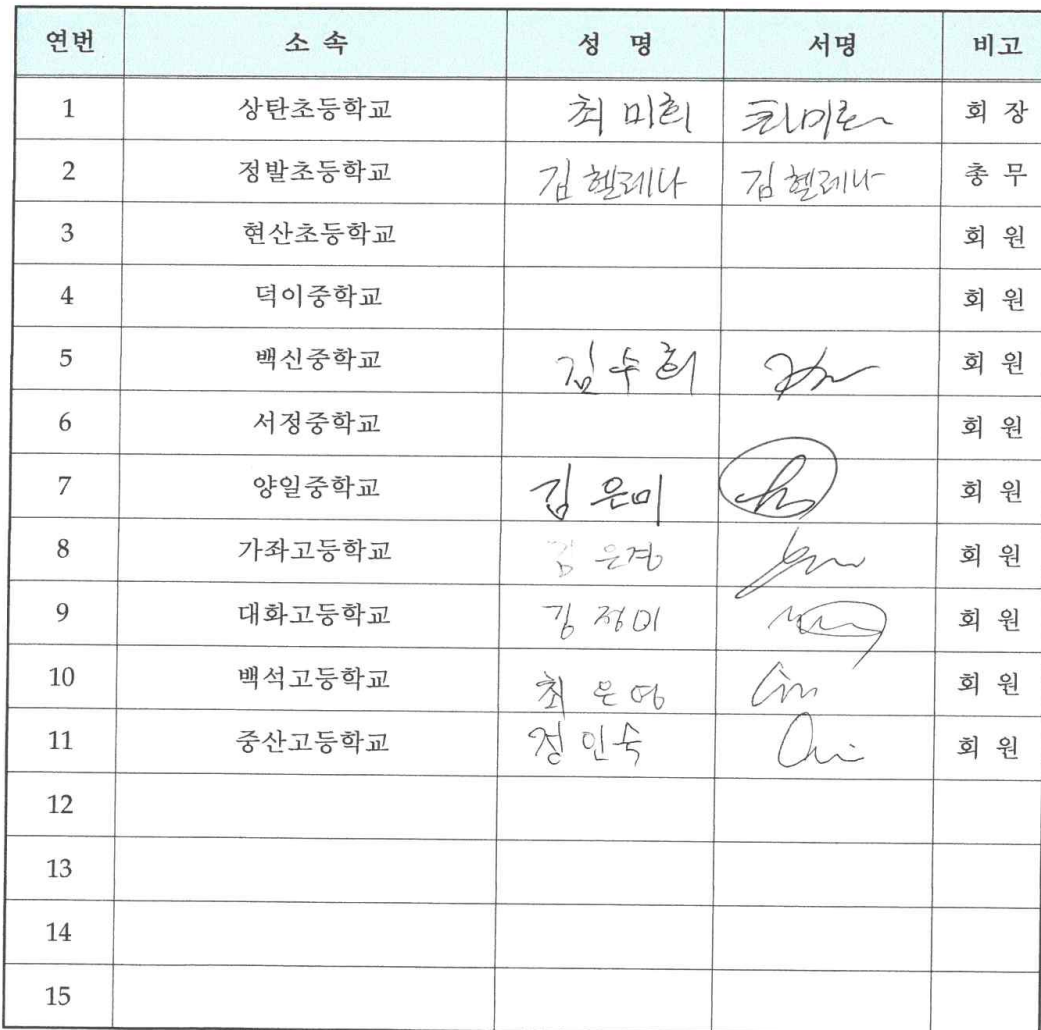 연번 소 속 성 명 서명 비고
1 상탄초등학교 최 미희 최미희 회 장
2 정발초등학교 김 헬레나 김 헬레나 총 무
3 현산초등학교 회 원
4 덕이중학교 회 원
5 백신중학교 김 수 희 회 원
6 서정중학교 회 원
7 양일중학교 김 은미 회 원
8 가좌고등학교 김 은경 회 원
9 대화고등학교 김 정미 회 원
10 백석고등학교 최 은영 회 원
11 중산고등학교 정 인숙 회 원
12
13
14
15